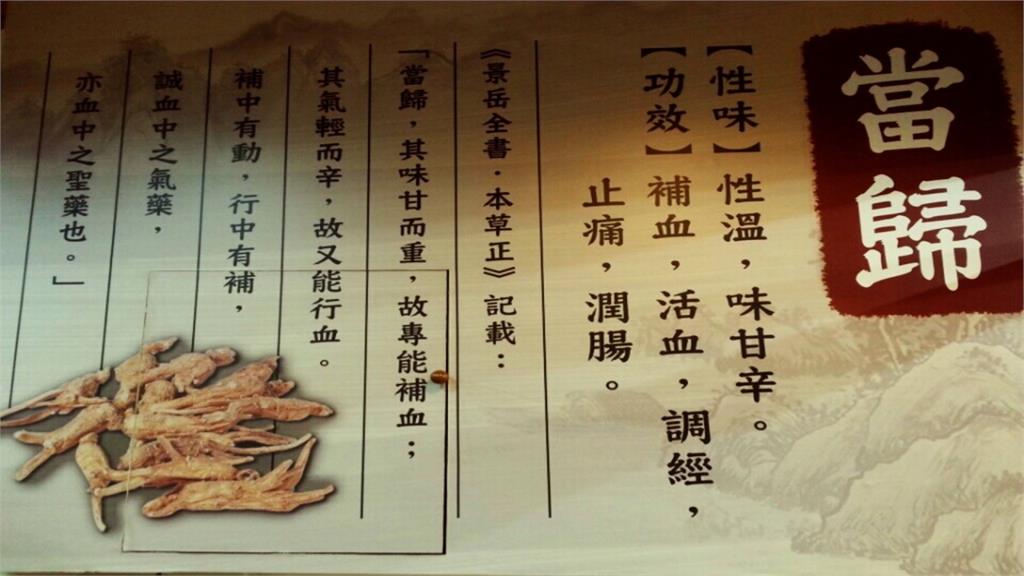 當歸
【性味】性溫，味甘辛。
【功效】補血，活血，調經，
止痛，潤腸。
《景岳全書·本草正》記載：
「當歸，其味甘而重，故專能補血；
其氣輕而辛，故又能行血。
補中有動，行中有補，
誠血中之氣藥，
亦血中之聖藥也。」